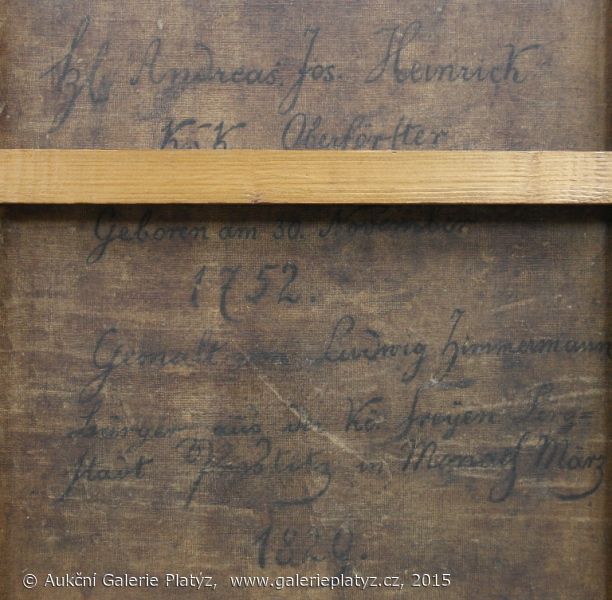 Andreas. Jos. Heinrich
K. K. Oberförster
Geboren am 30. November
1752.
Gemalt von Ludwig Zimmermann
Bürger aus der Kö freÿen Berg=
stadt in Monath März
1829.
© Aukční Galerie Platýz, www.galerieplatyz.cz, 2015